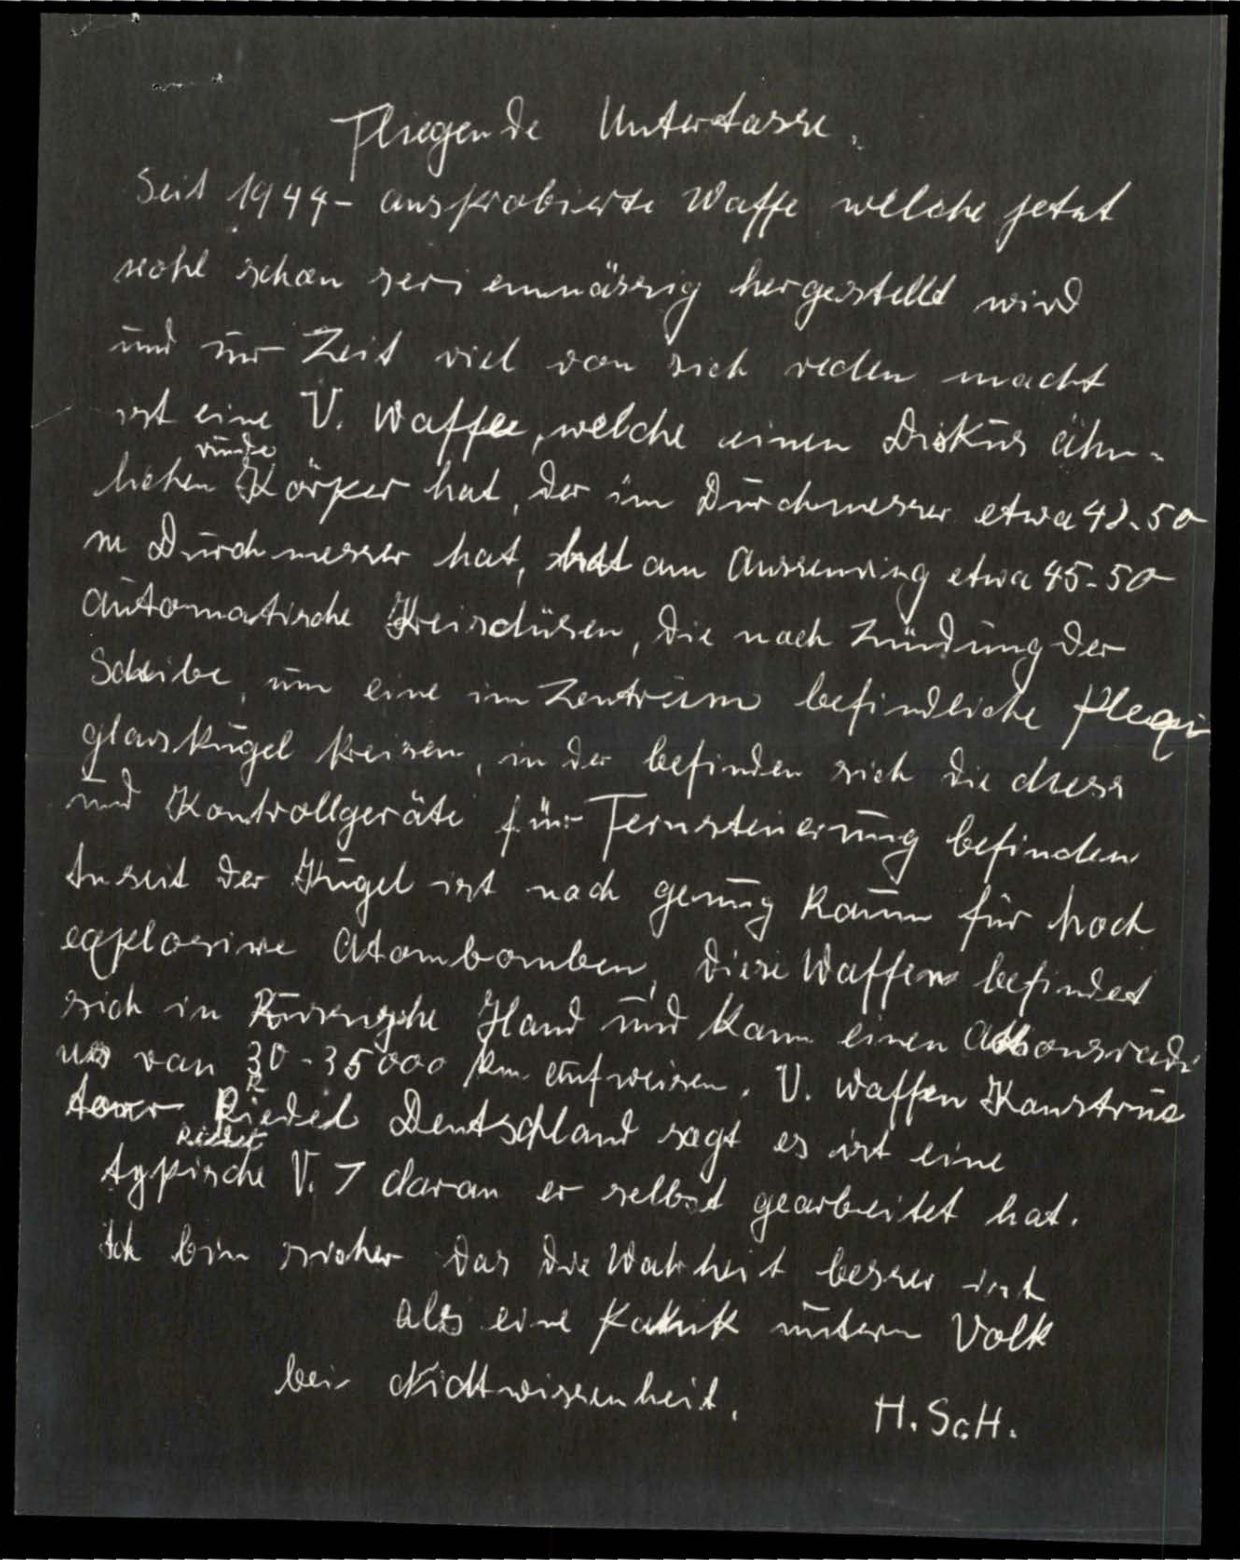 Fliegende Untertasse.
Seit 1944- ausprobierte Waffe welche jetzt
wohl schon serienmässig hergestellt wird
und zur Zeit viel von sich reden macht
ist eine V. Waffe, welche einen Diskus ähn-
runde
lichen Körper hat, der im Durchmesser etwa 42-50
m Durchmesser hat, hat am Aussenring etwa 45-50
automatische Kreisdüsen, die nach Zündung der
Scheibe, um eine im Zentrum befindliche Plexi
glaskugel kreisen, in der befinden sich die Mess
und Kontrollgeräte für Fernsteuerung befinden
der Kugel ist noch genug Raum für hoch
explosive Atombomben, diese Waffen befindet
sich in Hand und kann einen Aktionsradi
us von 30-35000 km aufweisen. V. Waffen Konstruk
teur Riedel Deutschland sagt es ist eine
Riedel
typische V. 7 daran er selbst gearbeitet hat.
Ich bin sicher das die Wahrheit besser ist
als eine Panik unterm Volk
bei Nichtwissenheit.
H. ScH.